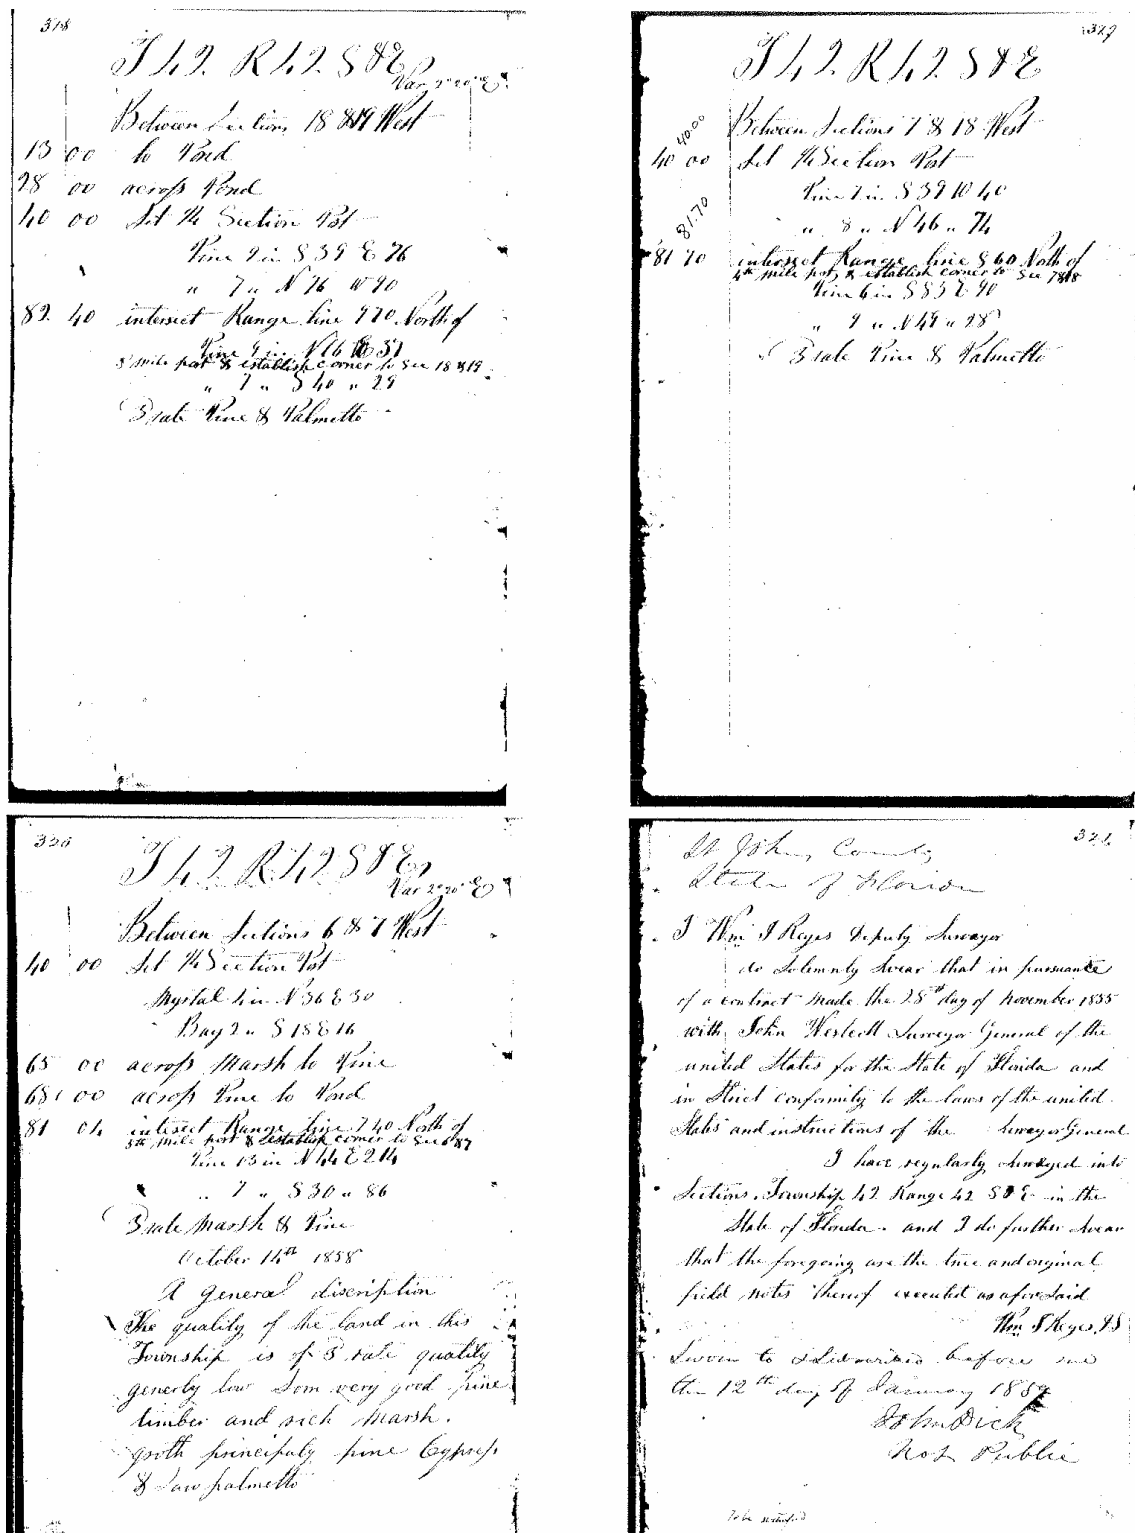 318
T 42. R 42. S & E
Var 2° 20' E
Between Sections 18 & 19 West
13 00 to Pond
28 00 across Pond
40 00 Set ¼ Section Post
Pine 9 in S 39 E 76
" 7 " N 76 W 90
82 40 intersect Range line North of
5 mile post & establish corner to Sec 18 & 19
" 7 " S 40 " 29
3 rate Pine & Palmetto
T 42. R 42. S & E
Between Sections 7 & 18 West
40.00
40 00 Set ¼ Section Post
Pine 7 in S 39 W 40
" 8 " N 46 " 74
81.70
81 70 intersect Range line 860 North of
4th mile post & establish corner to Sec 7 & 18
Pine 6 in S 83 E 90
" 9 " N 49 " 28
3 rate Pine & Palmetto
320
T 42 R 42 S & E
Var 2° 20' E
Between Sections 6 & 7 West
40 00 Set ¼ Section Post
Myrtal 4 in N 36 E 30
Bay 2 " S 18 E 16
65 00 across Marsh to Pine
68 00 across Pine to Pond
81 04 intersect Range Line 740 North of
5th mile post & establish corner to Sec 6 & 7
Pine 13 in N 44 E 214
" 7 " S 30 " 86
3 rate Marsh & Pine
October 14th 1858
A general discription
The quality of the land in this
Township is of 3 rate quality
generly low Som very good pine
timber and rich Marsh.
groth principaly pine Cypress
& Saw palmetto
321
St Johns County
State of Florida
I Wm J Reyes Deputy Surveyor
do Solemnly Swear that in pursuance
of a contract made the 28th day of November 1855
with John Westcott Surveyor General of the
united States for the State of Florida and
in Strict Conformity to the laws of the united
States and instructions of the Surveyor General
I have regularly Surveyed into
Sections, Township 42 Range 42 S & E in the
State of Florida. and I do further Swear
that the foregoing are the true and original
field notes thereof executed as afore Said
Wm J Reyes, D S
Sworn to & Subscribed before me
this 12th day of January 1859
John Dick
Not Public